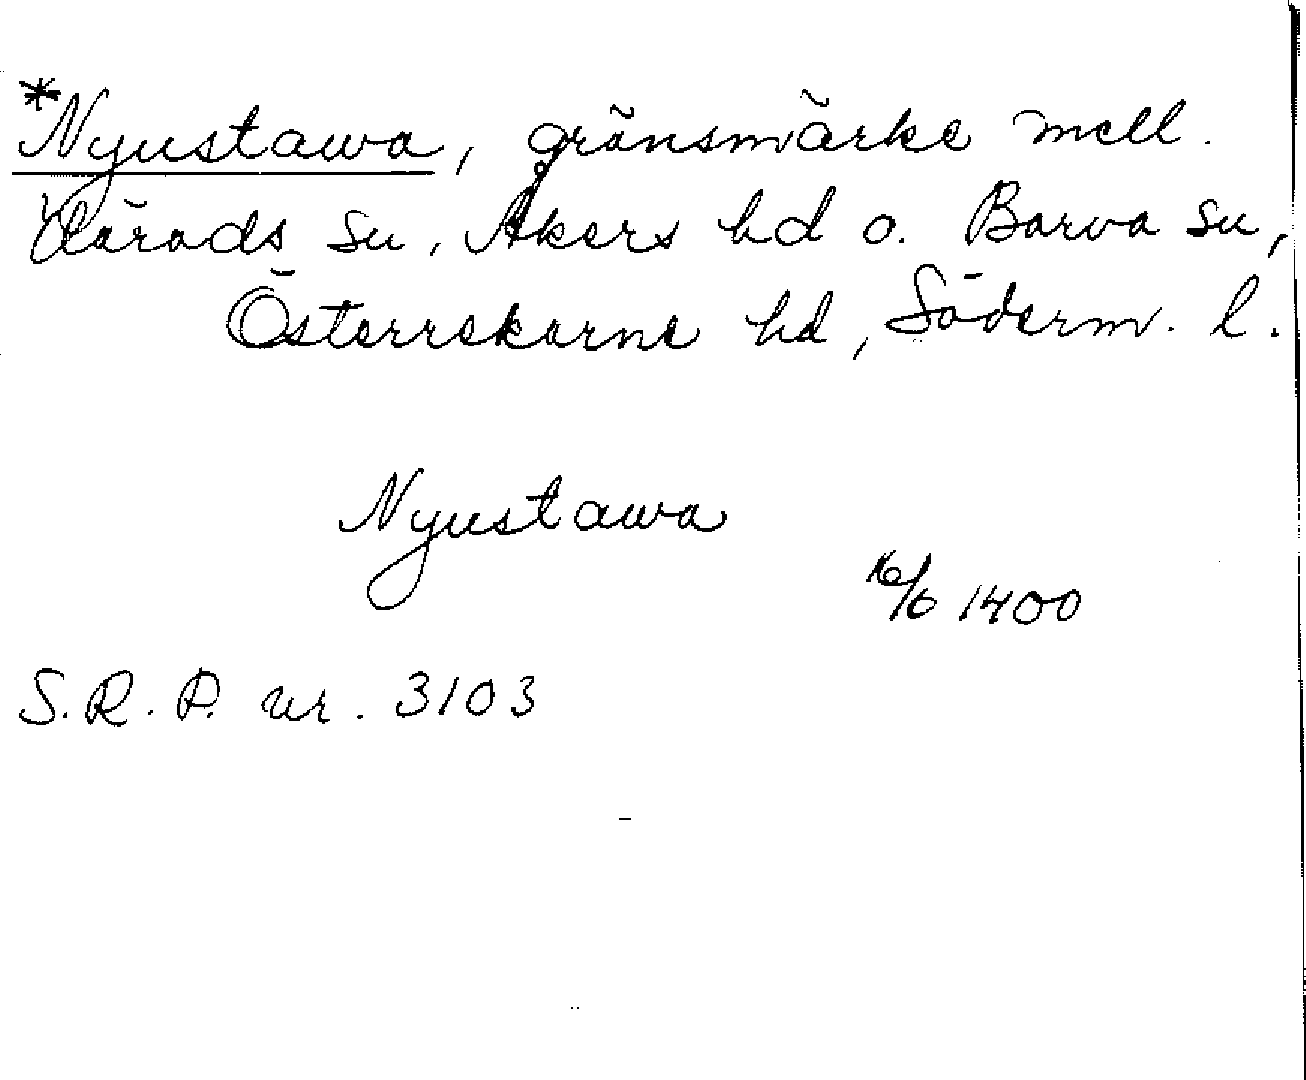 *Nyustawa, gränsmärke mell.
Härads sn, Åkers hd o. Barva sn,
Österrekarne hd, Söderm. l.
Nyustawa
16/6 1400
S.R.P. nr. 3103